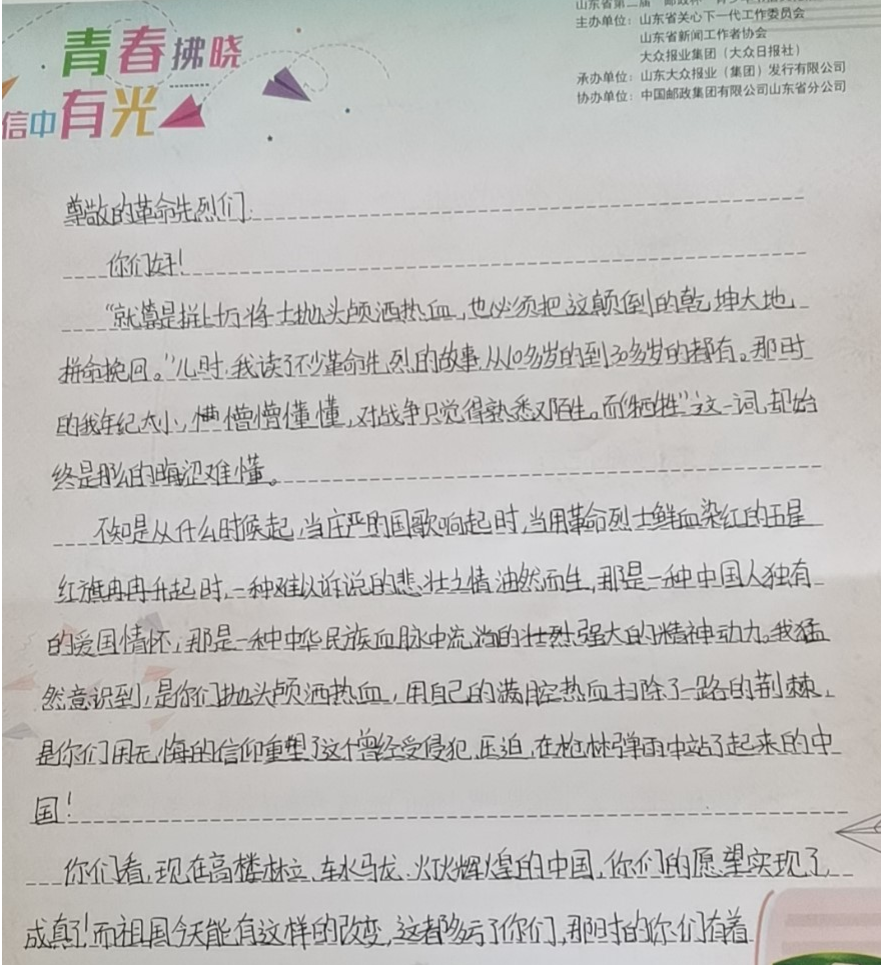 青春拂晓
信中有光
山东省第二届"邮政杯"青少年
主办单位：山东省关心下一代工作委员会
山东省新闻工作者协会
大众报业集团（大众日报社）
承办单位：山东大众报业（集团）发行有限公司
协办单位：中国邮政集团有限公司山东省分公司
尊敬的革命先烈们：
你们好！
“就算是拼上万将士抛头颅洒热血，也必须把这颠倒的乾坤大地，
拼命挽回。”儿时，我读了不少革命先烈的故事，从10多岁的到30多岁的都有。那时
的我年纪太小，懵懵懂懂，对战争只觉得熟悉又陌生。而“牺牲”这一词，却始
终是那么的晦涩难懂。
不知是从什么时候起，当庄严的国歌响起时，当用革命烈士鲜血染红的五星
红旗冉冉升起时，一种难以诉说的悲壮之情油然而生，那是一种中国人独有
的爱国情怀，那是一种中华民族血脉中流淌的壮烈强大的精神动力。我猛
然意识到，是你们抛头颅洒热血，用自己的满腔热血扫除了一路的荆棘，
是你们用无悔的信仰重塑了这个曾经受侵犯、压迫，在枪林弹雨中站了起来的中
国！
你们看，现在高楼林立，车水马龙，灯火辉煌的中国，你们的愿望实现了，
成真了！而祖国今天能有这样的改变，这都多亏了你们，那时的你们有着